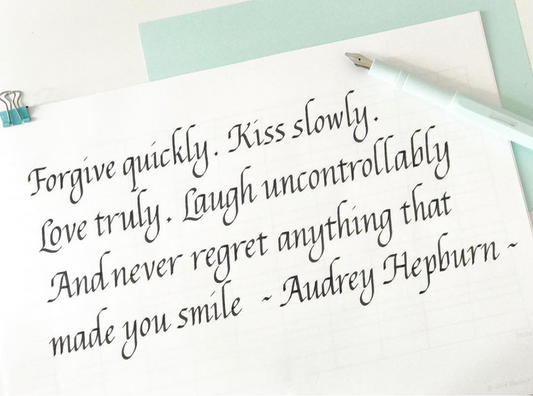 Forgive quickly. Kiss slowly.
Love truly. Laugh uncontrollably
And never regret anything that
made you smile ~ Audrey Hepburn ~